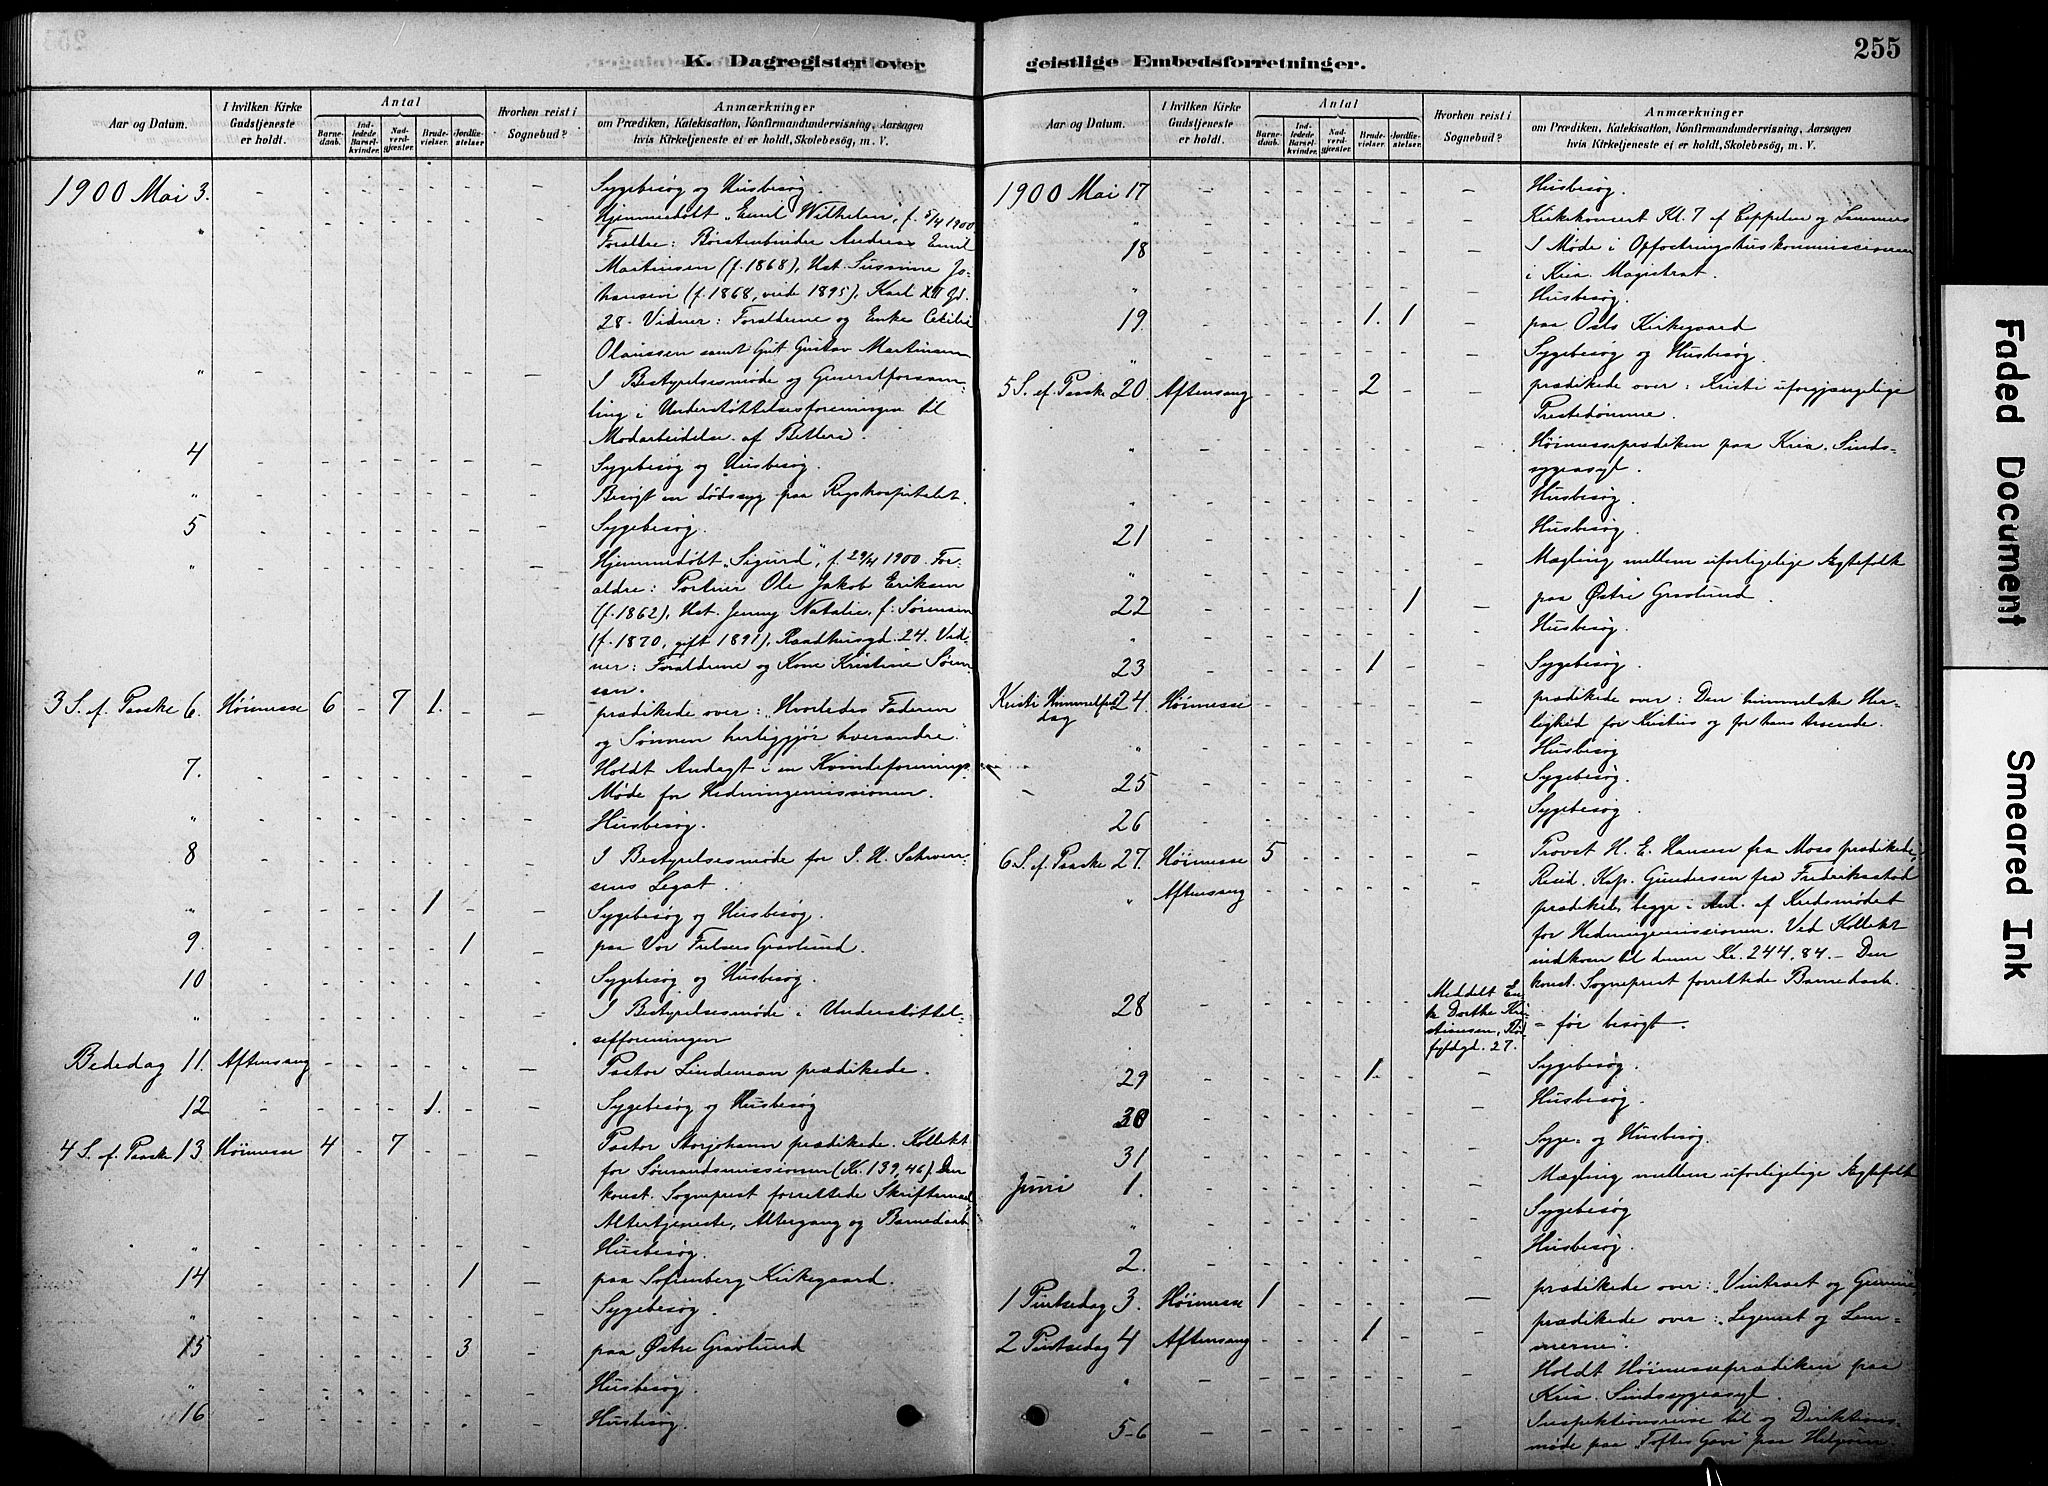 255
K. Dagregister over geistlige Embedsforretninger.
Aar og Datum.
I hvilken Kirke Gudstjeneste er holdt.
Antal
Barnedaab.
Indledede Barselkvinder.
Nadverdgjester.
Brudevielser.
Jordfæstelser
Hvorhen reist i Sognebud?
Anmærkninger
om Prædiken, Katekisation, Konfirmandundervisning, Aarsagen
hvis Kirketjeneste ei er holdt, Skolebesøg, m. V.
1900 Mai 3. - - - - - - - Sygebesøg og Husbesøg.
" - - - - - - - Hjemmedøbt "Emil Wilhelm, f. 5/4 1900.
Forældre: Børstenbinder Andreas Emil
Martinsen (f. 1868), Hst. Susanne Jo-
hansen (f. 1868, viede 1895), Karl XII Gd.
28. Vidner: Forældrene og Enke Cecilie
Olaussen samt Gut Gustav Martinsen
" - - - - - - - I Bestyrelsesmøde og Generalforsam-
ling i Understøttelsesforeningen til
Modarbeidelse af Betleri.
4 - - - - - - - Sygebesøg og Husbesøg.
" - - - - - - - Besøgt en dødssyg paa Rigshospitalet.
5 - - - - - - - Sygebesøg.
" - - - - - - - Hjemmedøbt "Sigurd", f. 29/4 1900. For-
ældre: Portner Ole Jakob Eriksen
(f. 1862), Hst. Jenny Natalie, f. Sørensen
(f. 1870, gift 1891), Raadhusgd. 24. Vid-
ner: Forældrene og Kone Kristine Søren-
sen.
3 S. e. Paaske 6. Høimesse 6 - 7 1. - - prædikede over: "Hvorledes Faderen
og Sønnen herliggjør hverandre."
7. - - - - - - - Holdt Andagt i en Kvindeforenings
Møde for Hedningemissionen.
" - - - - - - - Husbesøg.
8 - - - - - - - I Bestyrelsesmøde for
sens Legat.
" - - - - 1 - - Sygebesøg og Husbesøg.
9. - - - - - 1 - paa Vor Frelsers Gravlund.
10 - - - - - - - Sygebesøg og Husbesøg.
" - - - - - - - I Bestyrelsesmøde i Understøttel-
sesforeningen
Bededag 11. Aftensang - - - - - - Pastor Lindeman prædikede.
12 - - - - 1. - - Sygebesøg og Husbesøg
4 S. e. Paaske 13 Høimesse 4 - 7 - - - Pastor Storjohann prædikede. Kollekt
for Sømandsmissionen (Kr. 139,46). Den
konst. Sogneprest forrettede Skriftemaal,
Altertjeneste, Altergang og Barnedaab
" - - - - - - - Husbesøg.
14 - - - - - 1 - paa Sofienberg Kirkegaard.
" - - - - - - - Sygebesøg.
15 - - - - - 3 - paa Østre Gravlund
" - - - - - - - Husbesøg.
16 - - - - - - - Husbesøg.
Aar og Datum.
I hvilken Kirke Gudstjeneste er holdt.
Antal
Barnedaab.
Indledede Barselkvinder.
Nadverdgjester.
Brudevielser.
Jordfæstelser.
Hvorhen reist i Sognebud?
Anmærkninger
om Prædiken, Katekisation, Konfirmandundervisning, Aarsagen
hvis Kirketjeneste ei er holdt, Skolebesøg, m. V.
1900 Mai 17 - - - - - - - Husbesøg.
" - - - - - - - Kirkekoncert Kl. 7 af Cappelen og Lammers
18 - - - - - - - I Møde i Opfostringshuskommissionen
i Kria. Magistrat.
" - - - - - - - Husbesøg.
19 - - - - 1. 1 - paa Oslo Kirkegaard
" - - - - - - - Sygebesøg og Husbesøg.
5 S. ef. Paaske 20 Aftensang - - - 2 - - prædikede over: Kristi uforgjængelige
Prestedømme.
" - - - - - - - Høimesseprædiken paa Kria. Sinds-
sygeasyl.
" - - - - - - - Husbesøg.
21 - - - - - - - Husbesøg.
" - - - - - - - Mægling mellem uforligelige Ægtefolk
22 - - - - - 1 - paa Østre Gravlund.
" - - - - - - - Husbesøg.
23 - - - - 1 - - Sygebesøg.
Kristi Himmelfarts- 24. Høimesse - - - - - - prædikede over: Den himmelske Her-
dag lighed for Kristus og for hans troende.
" - - - - - - - Husbesøg
25 - - - - - - - Sygebesøg.
26 - - - - - - - Sygebesøg.
6. S. ef. Paaske 27. Høimesse 5 - - - - - Provst H. E. Hansen fra Moss prædikede,
" Aftensang - - - - - - Resid. Kap. Gundersen fra Fredriksstad
prædiked, begge i Anl. af Kredsmødet
for Hedningemissionen. Ved Kollekt
indkom til denne Kr. 244.84. - Den
konst. Sogneprest forrettede Barnedaab.
28 - - - - - - Meddelt En-
ke Dorthe Kri-
stiansen,
fyldgd. 27. = før besøgt.
29 - - - - 1. - - Sygebesøg.
30 - - - - - - - Husbesøg.
31 - - - - - - - Syge- og Husbesøg.
Juni 1. - - - - - - - Mægling mellem uforligelige Ægtefolk
" - - - - - - - Sygebesøg
2. - - - - - - - Husbesøg.
1 Pintsedag 3. Høimesse 1 - - - - - prædikede over: "Vintræet og Grenene
2 Pintsedag 4 Aftensang - - - 1 - - prædikede over: "Legemet og Lem-
merne".
" - - - - - - - Holdt Høimesseprædiken paa
Kria. Sindssygeasyl.
5-6 - - - - - - - Inspektionsreise til og Direktions-
møde paa "Toftes Gave" paa Helgøen.
Faded Document
Smeared Ink